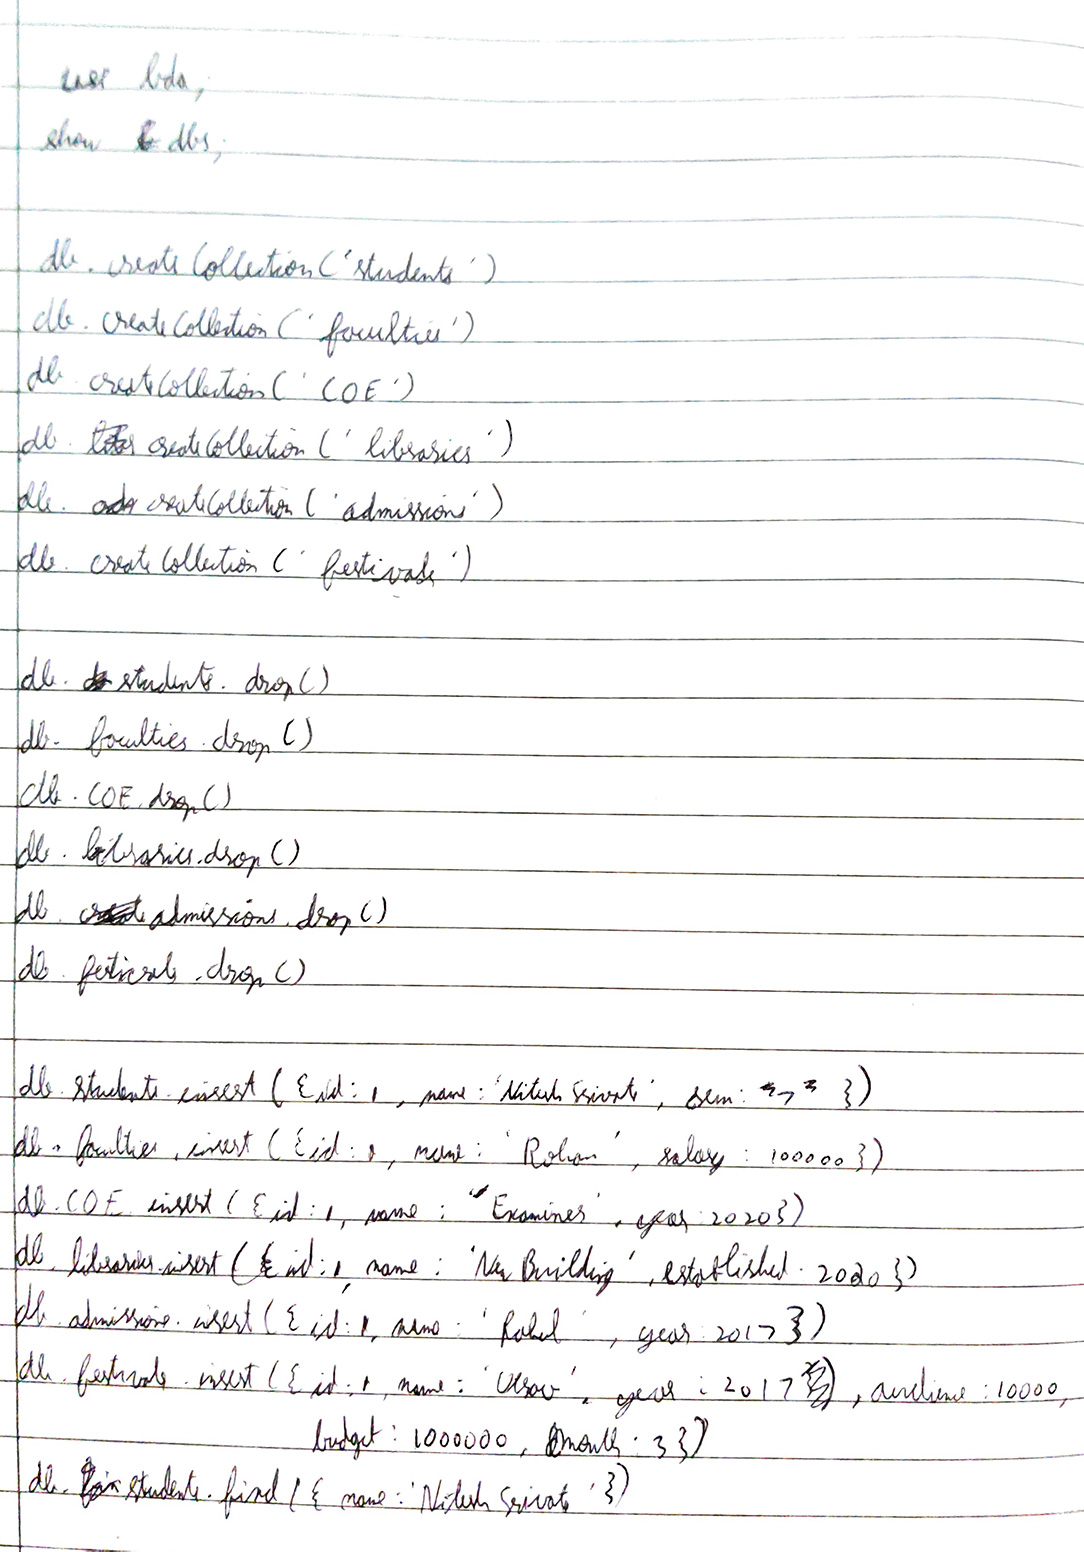 use bda;
show dbs;
db. createCollection('students')
db. createCollection('faculties')
db. createCollection('COE')
db. createCollection('libraries')
db. createCollection('admissions')
db. createCollection('festivals')
db. students. drop()
db. faculties. drop()
db. COE. drop()
db. libraries. drop()
db. admissions. drop()
db. festivals. drop()
db. students. insert({id: 1, name: 'Nitesh', sem: 7 })
db. faculties. insert({id: 1, name: 'Rohan', salary: 100000})
db. COE. insert({id: 1, name: 'Examiner', year: 2020})
db. libraries. insert({id: 1, name: 'New Building', established: 2020})
db. admissions. insert({id: 1, name: 'Rahul', year: 2017})
db. festivals. insert({id: 1, name: 'Utsav', year: 2017, audience: 10000,
budget: 1000000, month: 3})
db. students. find({ name: 'Nitesh'})